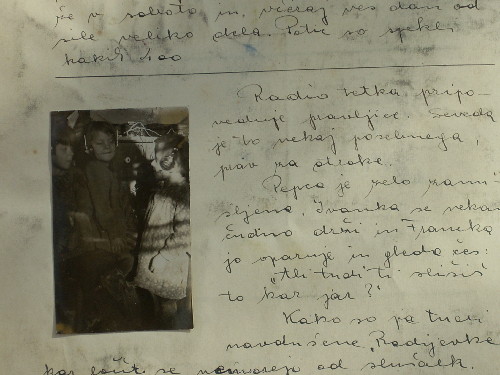 že v soboto in včeraj ves dan od
sile veliko dela. Potic so spekli
kakih 400
Radio tetka pripo-
veduje pravljice. Seveda
je to nekaj posebnega,
prav za otroke.
Pepca je zelo zami-
šljena, Ivanka se nekam
čudno drži in Francka
jo opazuje in gleda čes:
"Ali tudi ti slišiš
to kar jaz?"
Kako so pa tudi
navdušene "Radijevke
kar ločit se ne morejo od slušalk.